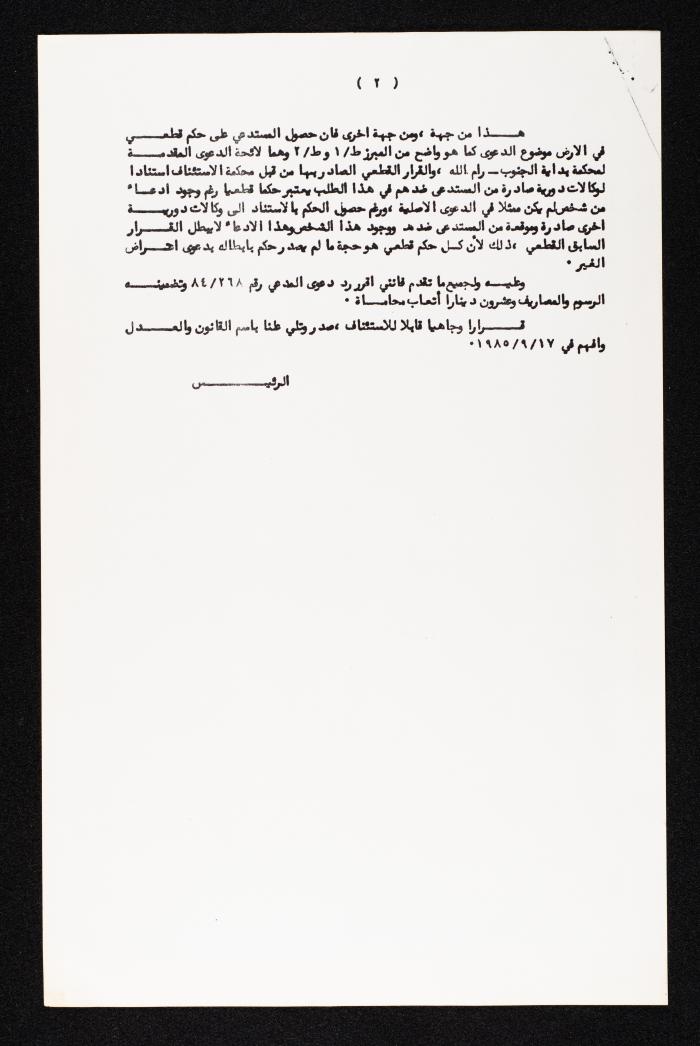 ( ٢ )
هـــذا من جهة ،ومن جهة اخرى فان حصول المستدعي على حكم قطعـــــي
في الارض موضوع الدعوى كما هو واضح من المبرز ط/١ و ط/٢ وهما لائحة الدعوى المقدمـــة
لمحكمة بداية الجنوب ــ رام الله ،والقرار القطعي الصادر بها من قبل محكمة الاستئناف استنادا
لوكالات دورية صادرة من المستدعى ضدهم في هذا الطلب يعتبر حكما قطعيا رغم وجود ادعـاء
من شخص لم يكن ممثلا في الدعوى الاصلية ،ورغم حصول الحكم بالاستناد الى وكالات دوريـــة
اخرى صادرة وموقعة من المستدعى ضده ووجود هذا الشخص وهذا الادعاء لا يبطل القـــرار
السابق القطعي ،ذلك لأن كـل حكم قطعي هو حجة ما لم يصدر حكم بابطاله بدعوى اعتـراض
الغير ٠
وعليـه ولجميع ما تقدم فانني اقرر رد دعوى المدعي رقم ٨٤/٢٦٨ وتضمينـــه
الرسوم والمصاريف وعشرون دينارا أتعاب محامـاة ٠
قـــرارا وجاهيا قابلا للاستئناف ،صدر وتلي علنا باسم القانون والعـــدل
وافهم في ١٩٨٥/٩/١٧٠
الرئيــــــس